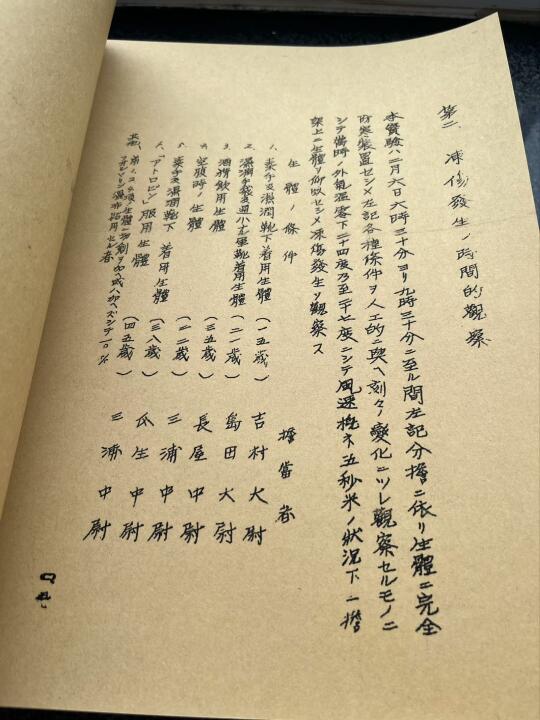 第二、凍傷發生ノ時間的觀察
本實驗ハ二月六日六時三十分ヨリ九時三十分ニ至ル間左記分擔ニ依リ生體ニ完全
防寒裝置セシメ左記各種條件ヲ人工的ニ與ヘ刻々ノ變化ニツレ觀察セルモノニ
シテ當時ノ外氣溫零下二十四度乃至二十七度ニシテ風速概ネ五秒米ノ狀況下ニ擔
架上ニ生體ヲ仰臥セシメ凍傷發生ヲ觀察ス
生體ノ條件 擔當者
1、素手及濕潤靴下着用生體 (一五歲) 吉村大尉
2、濕潤手袋及過小ナル軍靴着用生體 (二一歲) 島田大尉
3、酒精飲用生體 (三五歲) 長屋中尉
4、空腹時ノ生體 (二二歲) 三浦中尉
5、素手及濕潤靴下着用生體
「アトロピン」服用生體 (三八歲) 瓜生中尉
(四五歲) 三浦中尉
四